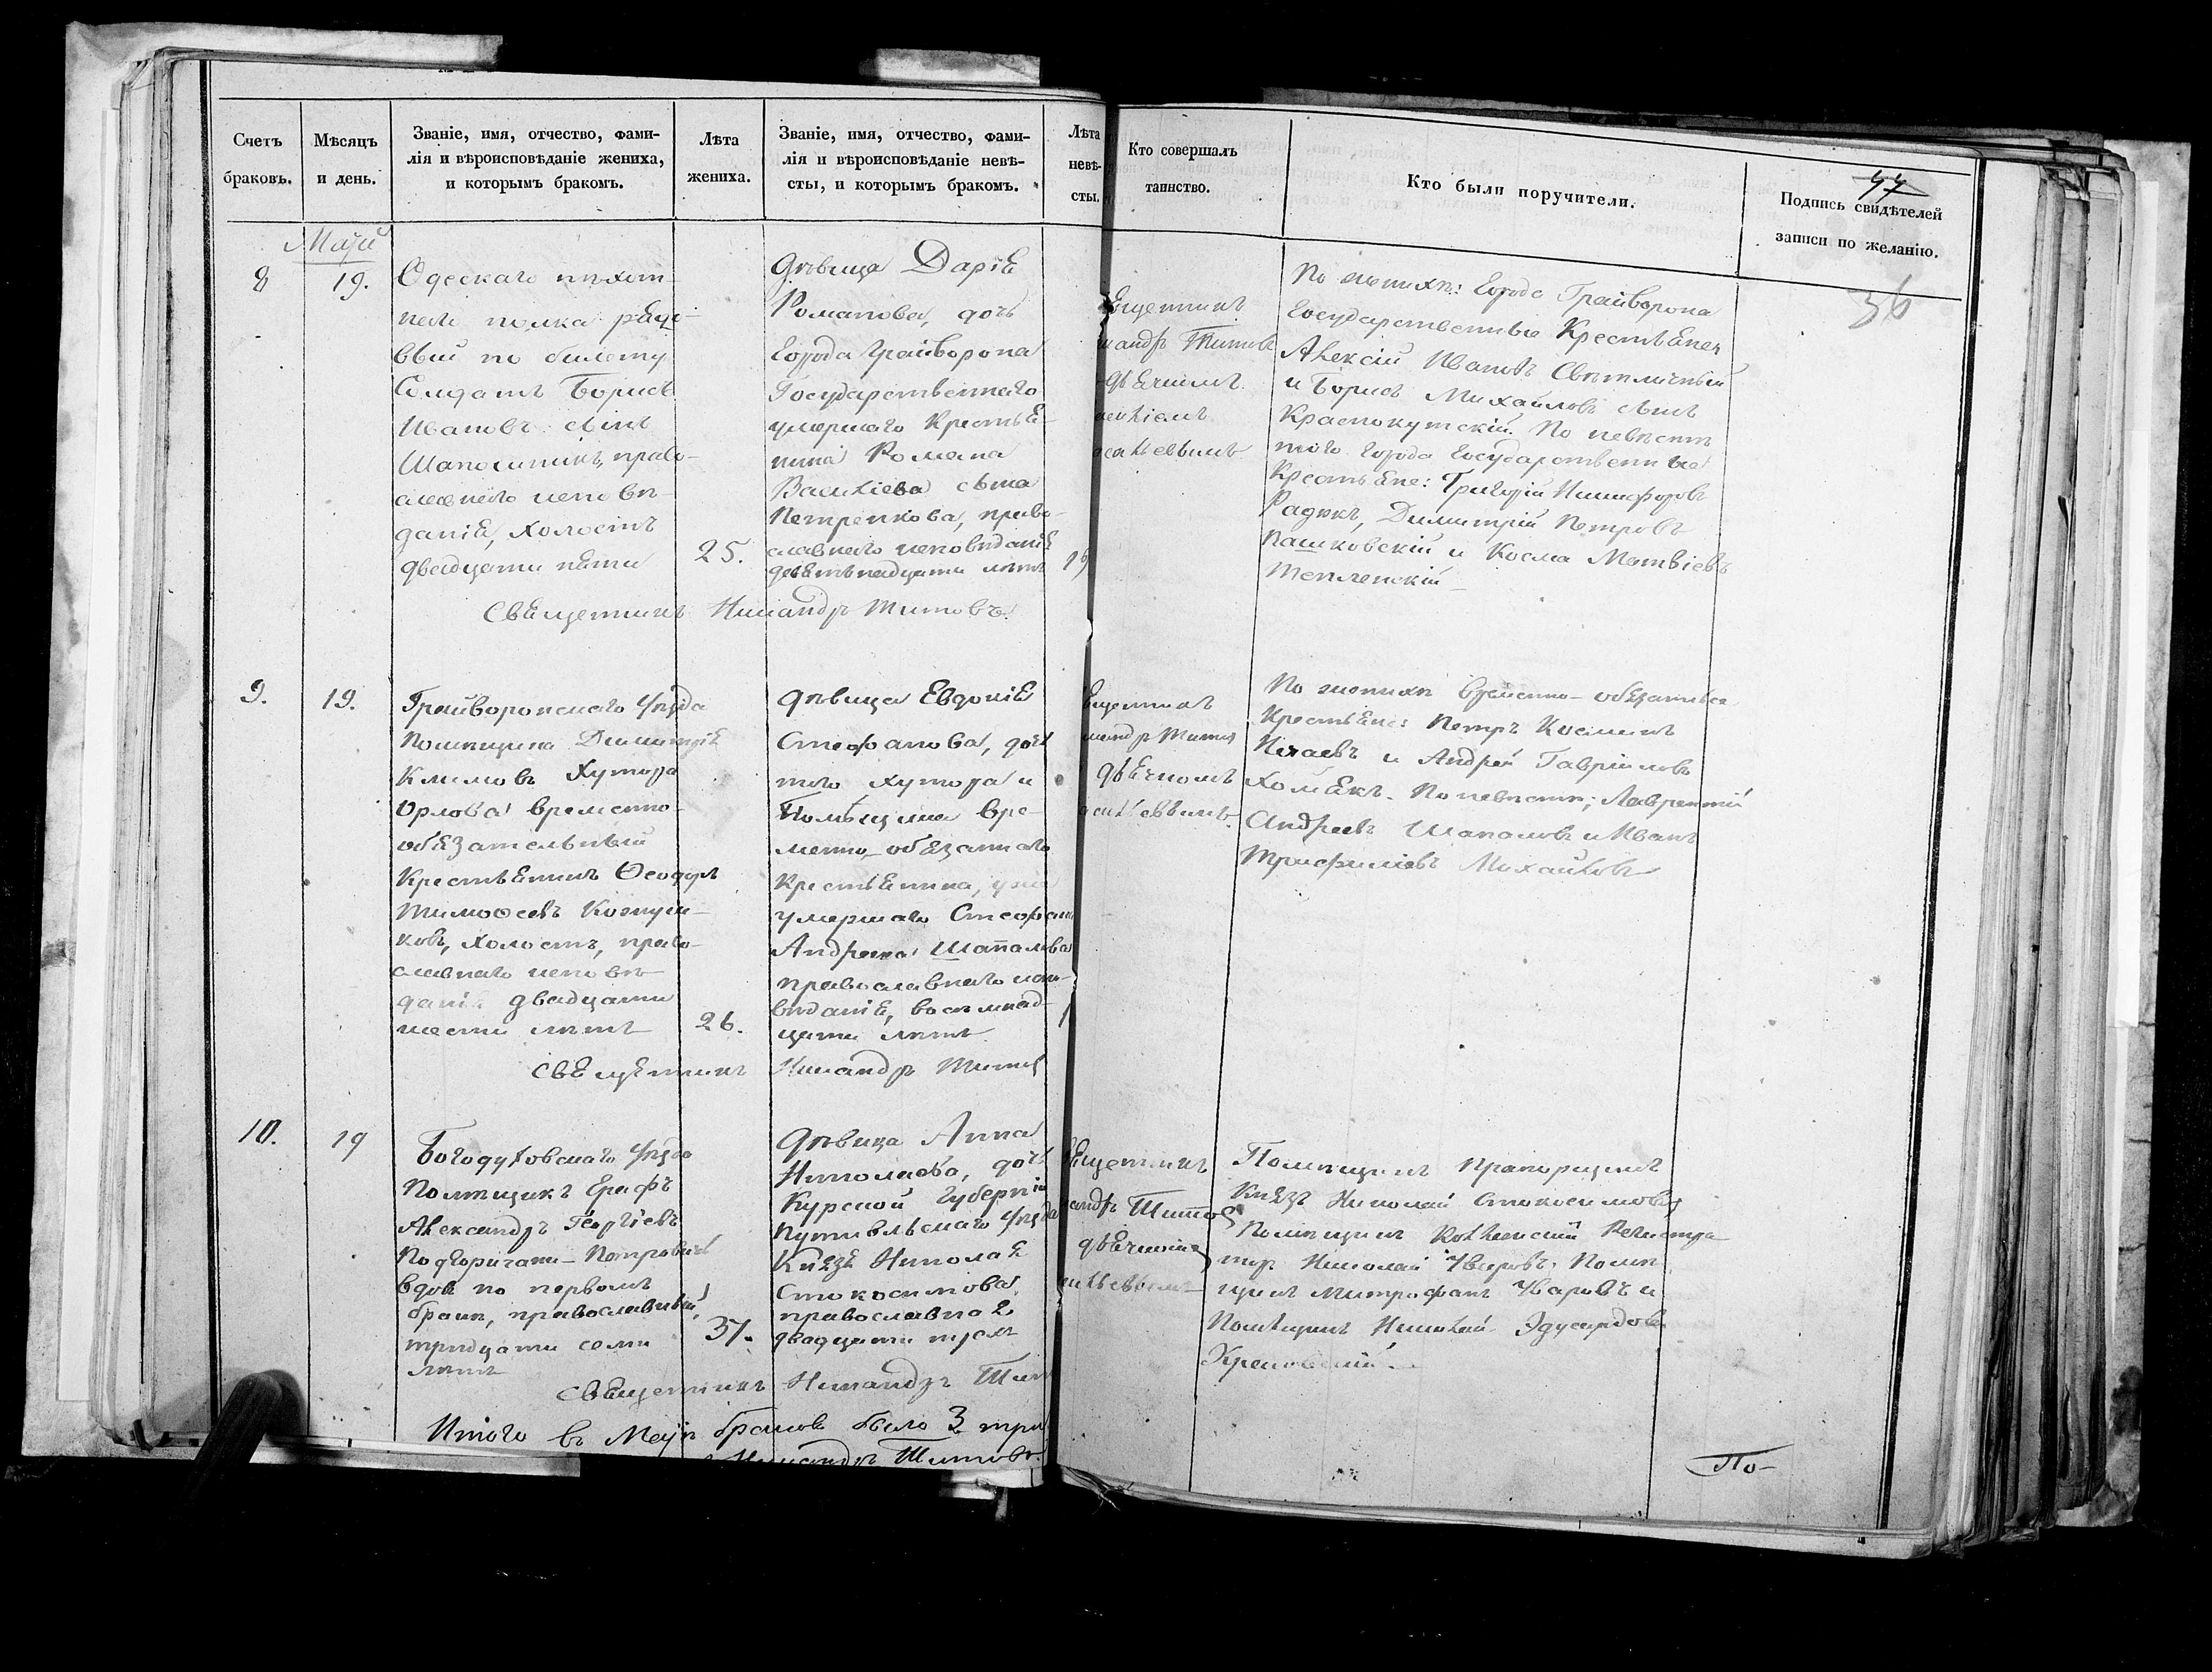 Счетъ
браковъ.
Мѣсяцъ
и день.
Званіе, имя, отчество, фами-
лія и вѣроисповѣданіе жениха,
и которымъ бракомъ.
Лѣта
жениха.
Званіе, имя, отчество, фами-
лія и вѣроисповѣданіе невѣ-
сты, и которымъ бракомъ.
Лѣта
невѣ-
сты.
Кто совершалъ
таинство.
Кто были поручители.
47
Подпись свидѣтелей
записи по желанію.
36
Маій
8
19.
Одескаго пѣхот-
наго полка
по билету
Солдатъ Борисъ
Ивановъ сынъ
право-
славнаго исповѣ-
данія, холостъ
двадцати пяти
25.
Дѣвица Дарія
Романова, дочь
города Грайворона
Государственнаго
умершаго крестья-
нина Романа
Василіева сына
Петренкова, право-
славнаго исповѣданія
девятьнадцати лѣтъ
19
Титовъ
По женихѣ: города Грайворона
Государственные Крестьяне
Алексій Ивановъ Свѣтличный
и Борисъ Михайловъ сынъ
Краснокутскій. По невѣстѣ
того города Государственные
Крестьяне: Григорій Никифоровъ
Радюкъ, Димитрій Петровъ
Пашковскій и Косма Матвіевъ
Тепленскій
Священникъ Никандръ Титовъ.
9.
19.
Грайворонскаго уѣзда
Помѣщика Димитрія
Климовъ Хутора
Орлова временно-
обязательный
Крестьянинъ Ѳеодоръ
Тимоѳеевъ
ковъ, холостъ, право-
славнаго исповѣ-
данія двадцати
шести лѣтъ
26.
Дѣвица Евдокія
Стефанова, дочь
того хутора и
Помѣщика вре-
менно-обязаннаго
Крестьянина, уже
умершаго Стефана
Андреева Шапалова
православнаго испо-
вѣданія, восемнад-
цати лѣтъ
По женихѣ временно-обязательные
Крестьяне: Петръ Косминъ
и Андрей Гавріиловъ
Хомякъ. По невѣстѣ; Лаврентій
Андреевъ Шапаловъ и Иванъ
Трифиліевъ Михайловъ
Священникъ Никандръ Титовъ
10.
19
Богодуховскаго уѣзда
Помѣщикъ Графъ
Александръ Георгіевъ
Подгоричани-Петровичъ
вдов по первомъ
бракѣ, православный,
тридцати семи
лѣтъ
37.
Дѣвица Анна
Николаева, дочь
Курской Губерніи
Путивльскаго уѣзда
Князя Николая
Стокосимова,
православная
двадцати трехъ
Титовъ
Помѣщикъ Прапорщикъ
Князь Николай Стокосимовъ
Помѣщикъ Коллежскій Регистра
торъ Николай Уваровъ, Помѣ
щикъ Митрофанъ Уваровъ и
Помѣщикъ Николай Эдуардовъ
Священникъ Никандръ Тит
Итого въ Маѣ браковъ было 3 три
Никандръ Титовъ.
По-